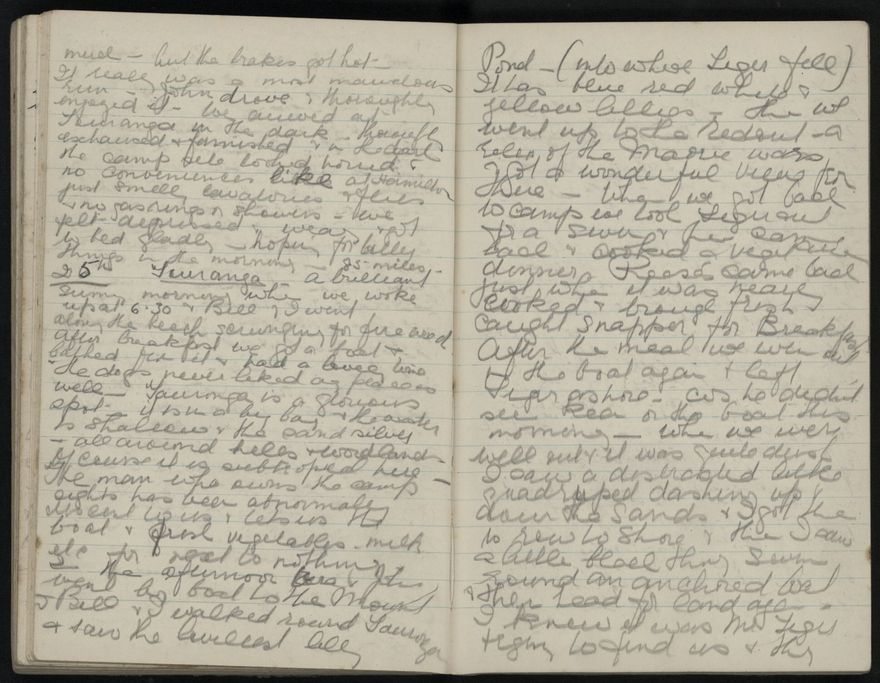 mud – but the brakes got hot –
It really was a most marvellous
run – John drove & thoroughly
enjoyed it – We arrived at
Tauranga in the dark – thoroughly
exhausted & famished & in the dark
the camp site looked horrid &
no conveniences like at Hamilton
just smelly lavatories & flies
& no gas rings & showers – we
felt depressed & weary & got
to bed gladly – hoping for better
things in the morning – 85 miles –
25th Tauranga – a brilliant
sunny morning when we woke
up at 6.30 & Bill & I went
along the beach scrounging for fire wood
After breakfast we got a boat &
bathed from it & had a lovely time
– the dogs never liked any place as
well – Tauranga is a glorious
spot – it is in a big bay & the water
is shallow & the sand silver
– all around hills & woodlands
Of course it is subtropical here
The man who owns the camp –
sights has been abnormally
decent to us & lets us the
boat & fresh vegetables – milk
etc for next to nothing
In the afternoon
went by boat to the Mount
& Bill & I walked round Tauranga
& saw the loveliest lily
Pond – (into where Tiger fell)
It has blue red white &
yellow lillies – then we
went up to the redout – a
relic of the Maorie wars
Got a wonderful view from
there – When we got back
to camp we took Tiger out
for a swim & then came
back & cooked a vegetable
dinner Kees came back
just when it was nearly
cooked & brought fresh
caught snapper for Breakfast
After the meal we went out
in the boat again & left
Tiger ashore – cos he didn't
see Kea on the boat this
morning – When we were
well out & it was quite dusk
I saw a distracted little
quadruped dashing up &
down the sands & I got the
to row to shore & then I saw
a little black thing swim
round an anchored boat
& then head for land again –
I knew it was Mr Tiger
trying to find us & they